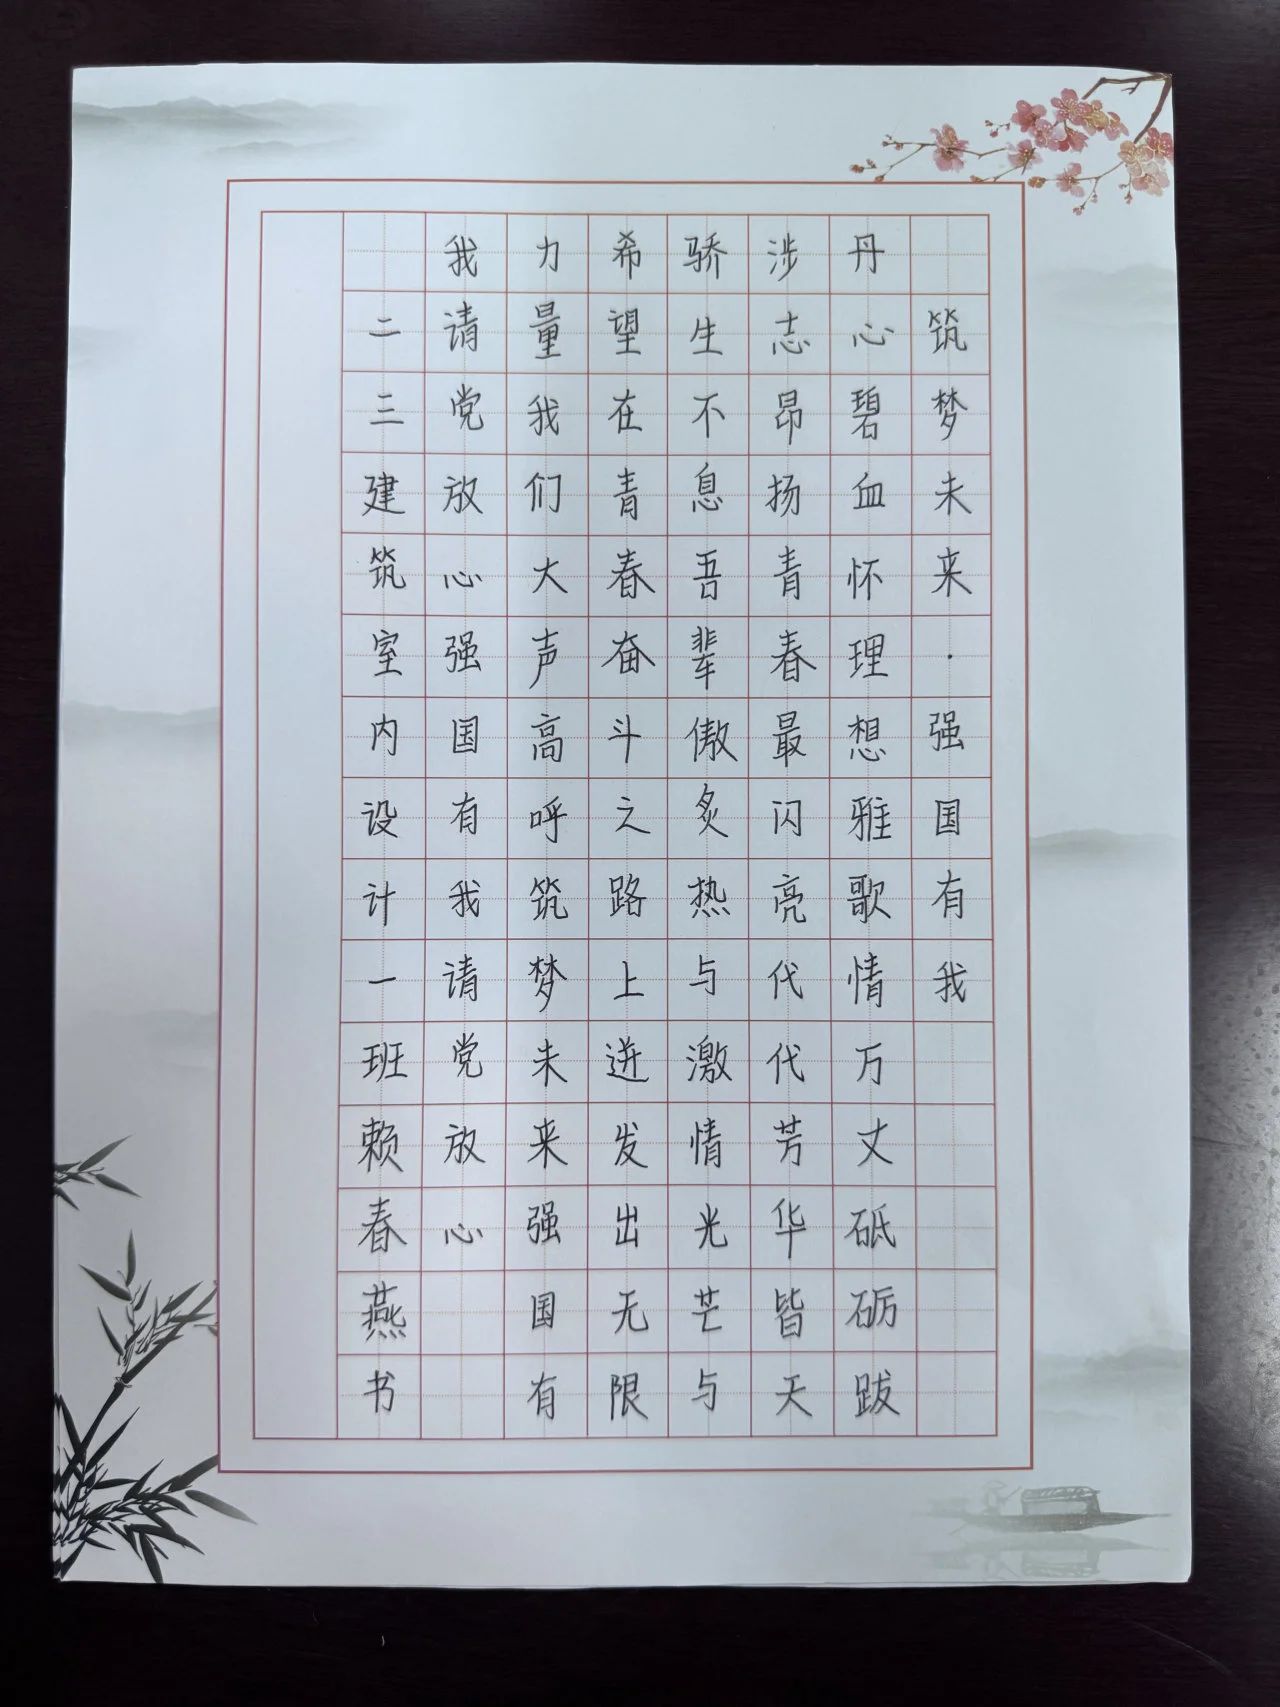 筑梦未来·强国有我
丹心碧血怀理想雅歌情万丈砥砺跋
涉志昂扬青春最闪亮代代芳华皆天
骄生不息吾辈傲炙热与激情光芒与
希望在青春奋斗之路上迸发出无限
力量我们大声高呼筑梦未来强国有
我请党放心强国有我请党放心
二三建筑室内设计一班赖春燕书